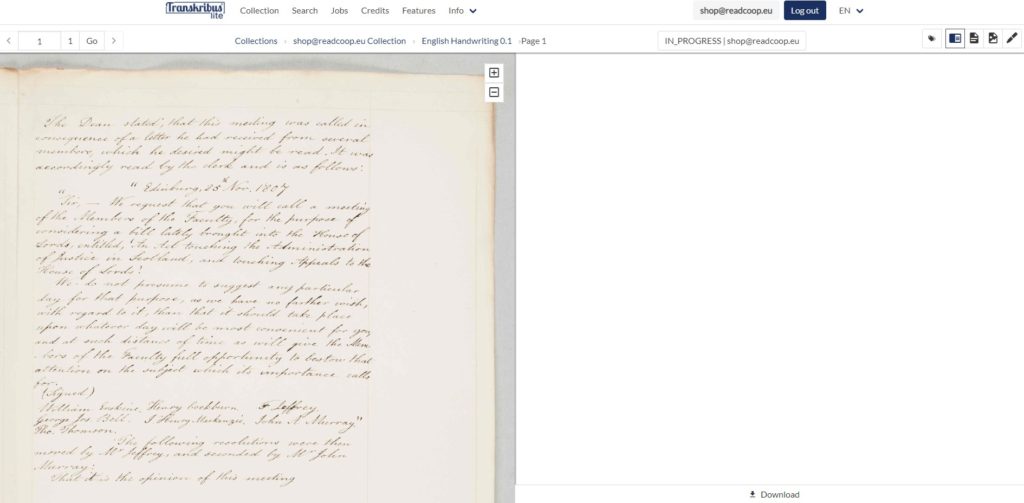 Transkribus lite
Collection Search Jobs Credits Features Info
shop@readcoop.eu Log out EN
1 1 Go
Collections shop@readcoop.eu Collection English Handwriting 0.1 Page 1
IN_PROGRESS | shop@readcoop.eu
The Dean stated, that this meeting was called in
consequence of a letter he had received from several
members, which he desired might be read. It was
accordingly read by the clerk and is as follows:
" Edinburg, 25th Nov. 1807
" Sir, — We request that you will call a meeting
of the Members of the Faculty, for the purpose of
considering a bill lately brought into the House of
Lords, entitled, 'An Act touching the Administration
of Justice in Scotland, and touching Appeals to the
House of Lords'.
We do not presume to suggest any particular
day for that purpose, as we have no farther wish,
with regard to it, than that it should take place
upon whatever day will be most convenient for you
and at such distance of time as will give the Mem
bers of the Faculty full opportunity to bestow that
attention on the subject which its importance calls
for.
(Signed)
William Erskine, Henry Cockburn, F. Jeffrey,
George Jos. Bell. J Henry Mackenzie, John A Murray,"
Tho. Thomson.
The following resolutions were then
moved by Mr Jeffrey, and seconded by Mr John
Murray:
That it is the opinion of this meeting
Download